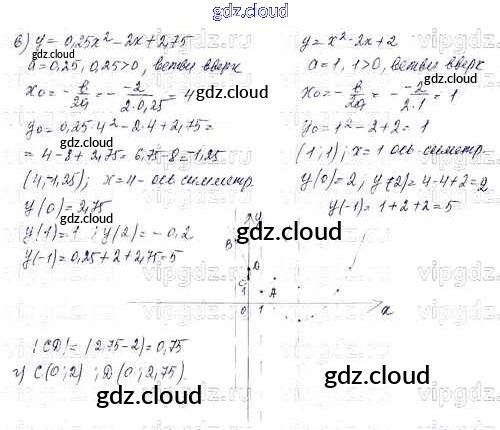 gdz.cloud
в) y = 0,25x² - 2x + 2,75
a = 0,25, 0,25 > 0, ветви вверх
x₀ = -в/2a = - -2/2·0,25 = 4
y₀ = 0,25·4² - 2·4 + 2,75 =
= 4 - 8 + 2,75 = 6,75 - 8 = -1,25
(4; -1,25); x = 4 - ось симметр.
y(0) = 2,75
y(1) = 1 ; y(2) = -0,2
y(-1) = 0,25 + 2 + 2,75 = 5
y = x² - 2x + 2
a = 1, 1 > 0, ветви вверх
x₀ = -в/2a = - -2/2·1 = 1
y₀ = 1² - 2 + 2 = 1
(1; 1); x = 1 ось симетр.
y(0) = 2, y(2) = 4 - 4 + 2 = 2
y(-1) = 1 + 2 + 2 = 5
gdz.cloud
gdz.cloud
gdz.cloud
y
B
D
C
1
A
0
1
x
|CD| = |2,75 - 2| = 0,75
г) C(0; 2) ; D(0; 2,75)
gdz.cloud
gdz.cloud
vipgdz.ru